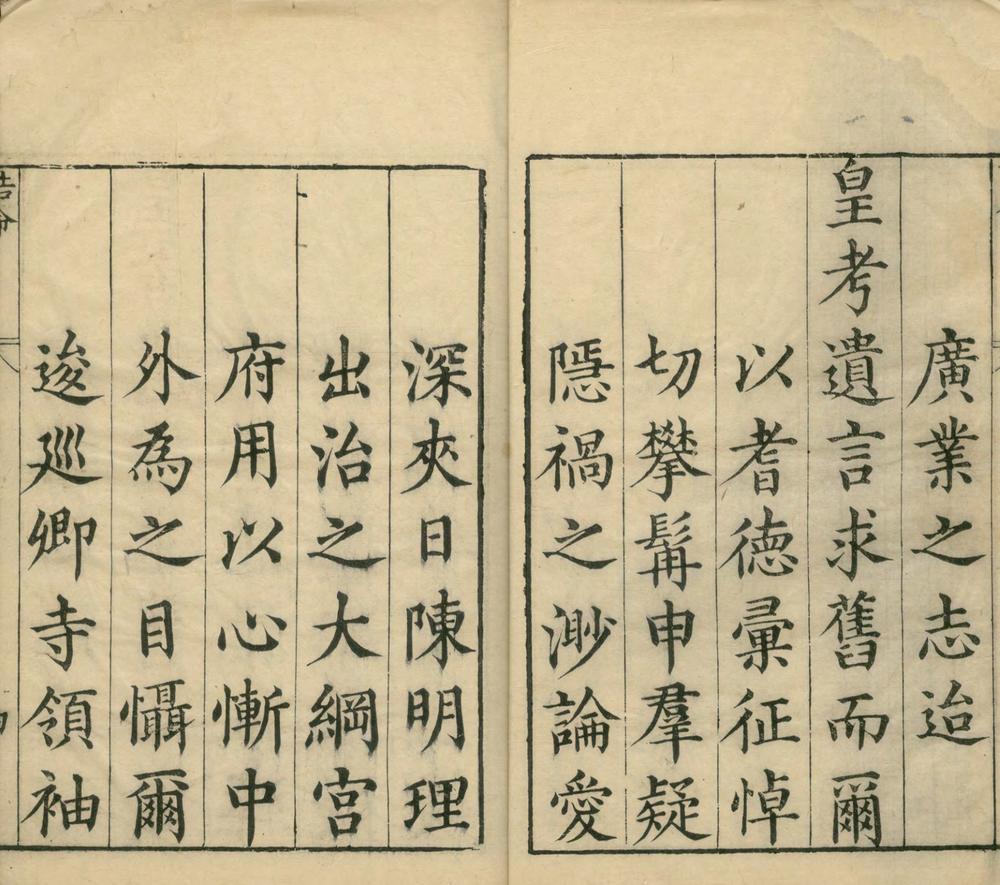 廣業之志迨
皇考遺言求舊而爾
以耆德彙征悼
切攀髯申羣疑
隱禍之渺論愛
深夾日陳明理
出治之大綱宮
府用以心慚中
外為之目懾爾
逡廵卿寺領袖